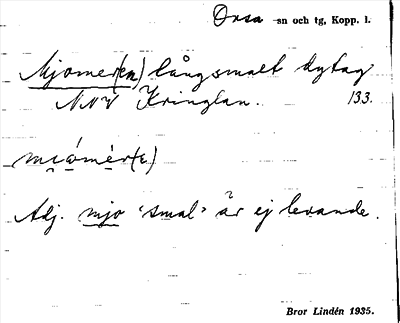 Orsa sn och tg, Kopp. l.
Mjomer(en) långsmalt dytag
NNV Kringlan. 133.
mịǻmèr(ε)
Adj. mjo 'smal' är ej levande.
Bror Lindén 1935.